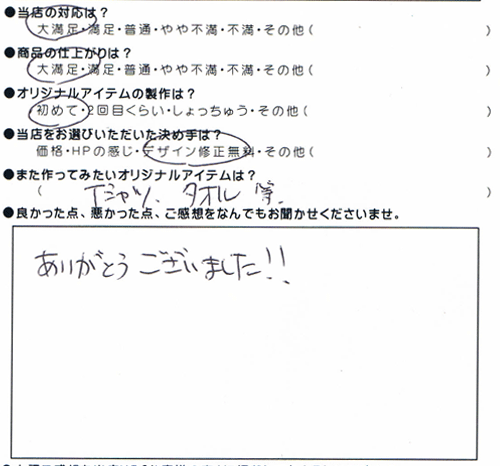 ●当店の対応は？
大満足・満足・普通・やや不満・不満・その他（　　）
●商品の仕上がりは？
大満足・満足・普通・やや不満・不満・その他（　　）
●オリジナルアイテムの製作は？
初めて・2回目くらい・しょっちゅう・その他（　　）
●当店をお選びいただいた決め手は？
価格・HPの感じ・デザイン修正無料・その他（　　）
●また作ってみたいオリジナルアイテムは？
（　Tシャツ、タオル 等.　）
●良かった点、悪かった点、ご感想をなんでもお聞かせくださいませ。
ありがとうございました!!